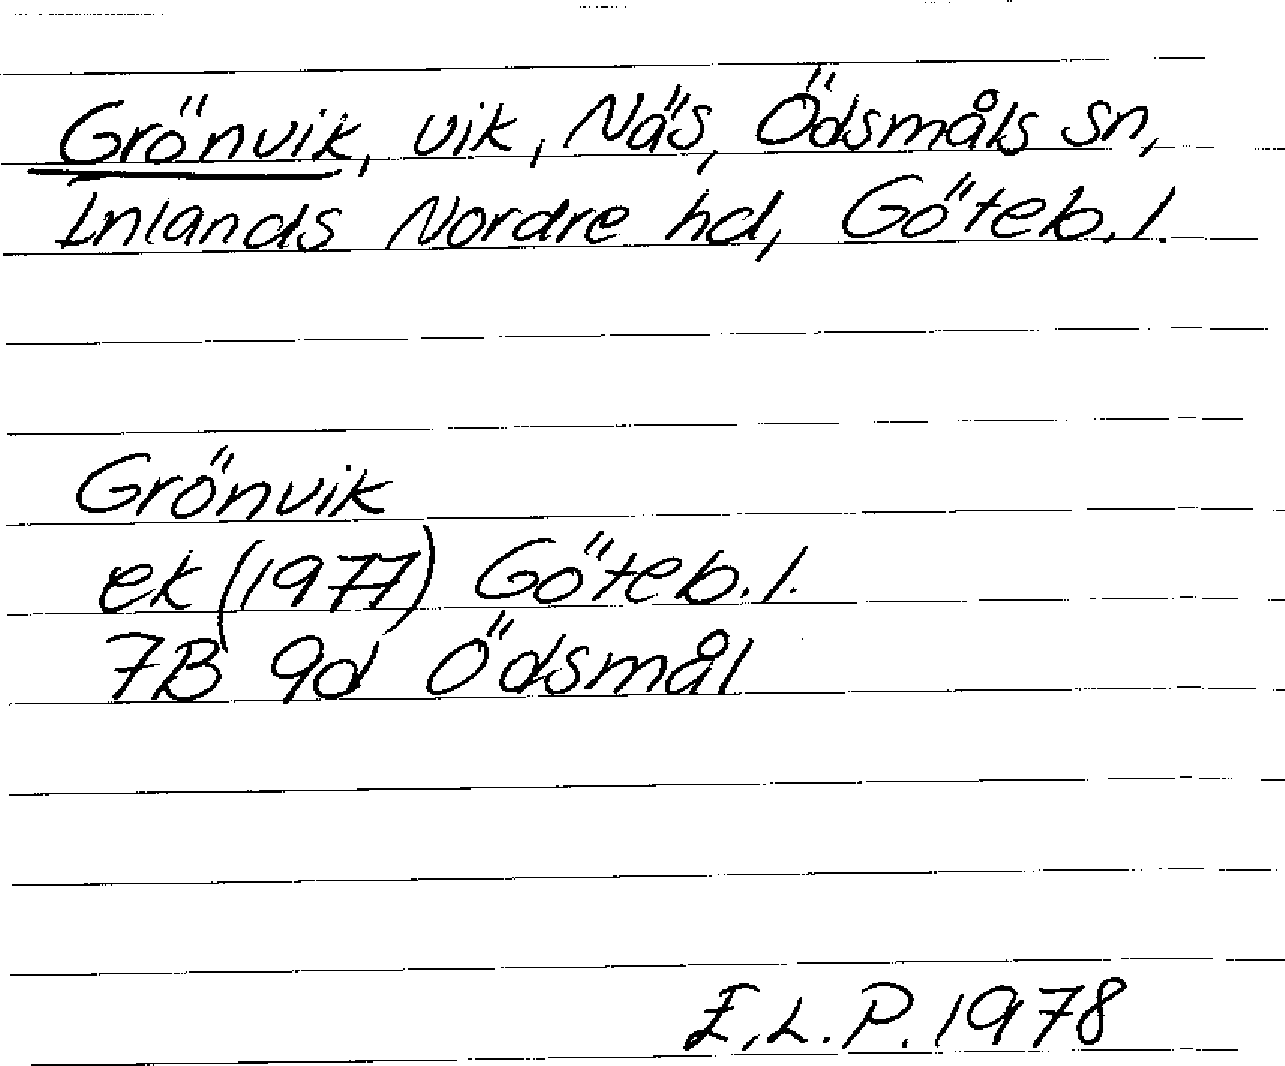 Grönvik, vik, Näs, Ödsmåls sn,
Inlands Nordre hd, Göteb.l.
Grönvik
ek (1977) Göteb.l.
7B 9d Ödsmål
I.L.P. 1978